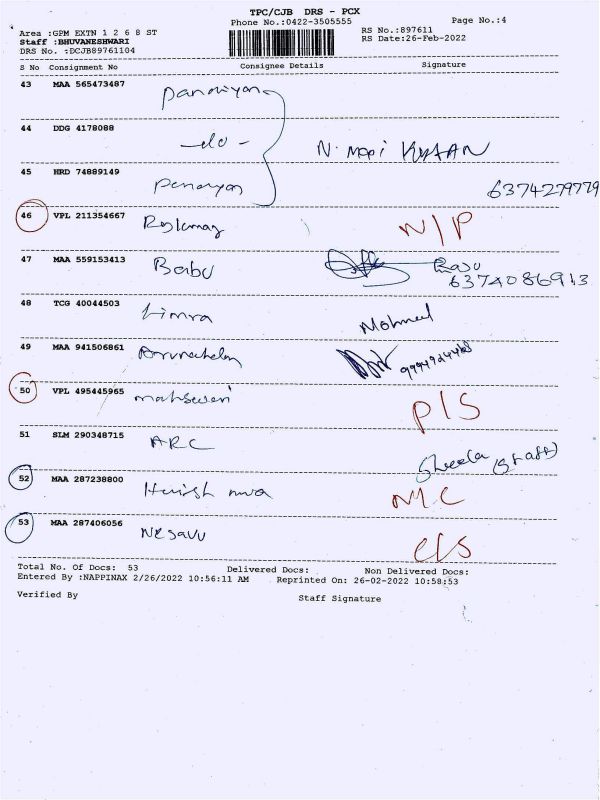 TPC/CJB DRS - PCX
Phone No.:0422-3505555 Page No.:4
Area :GPM EXTN 1 2 6 8 ST RS No.:897611
Staff :BHUVANESHWARI RS Date:26-Feb-2022
DRS No. :DCJB89761104
S No Consignment No Consignee Details Signature
43 MAA 565473487
44 DDG 4178088 -do- N. Mani
45 HRD 74889149 6374279779
46 VPL 211354667 N/P
47 MAA 559153413 Babu
6374086913
48 TCG 40044503 Limra
49 MAA 941506861 Arunachalam
50 VPL 495445965 P/S
51 SLM 290348715 ARC Sheela (staff)
52 MAA 287238800 N.C
53 MAA 287406056 Nesavu C/S
Total No. Of Docs: 53 Delivered Docs: Non Delivered Docs:
Entered By :NAPPINAX 2/26/2022 10:56:11 AM Reprinted On: 26-02-2022 10:58:53
Verified By Staff Signature